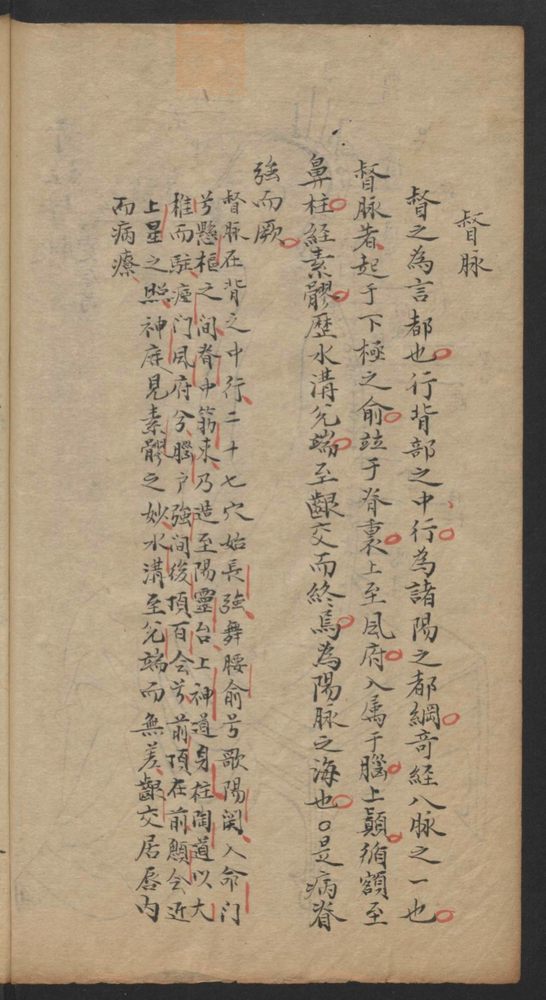 督脉
督之為言都也行背部之中行為諸陽之都綱奇經八脉之一也
督脉者起于下極之俞竝于脊裏上至風府入属于腦上顛循額至
鼻柱經素髎歷水溝兊端至齦交而終焉為陽脉之海也○是病脊
強而厥
督脉在背之中行二十七穴始長強舞腰俞兮歌陽関入命门
兮懸樞之间脊中筋束乃造至陽靈台上神道身柱陶道以大
椎而駐瘂门風府兮腦户強间後頂百会兮前頂在前顖会近
上星之照神庭見素髎之妙水溝至兊端而無差齦交居唇内
而病療